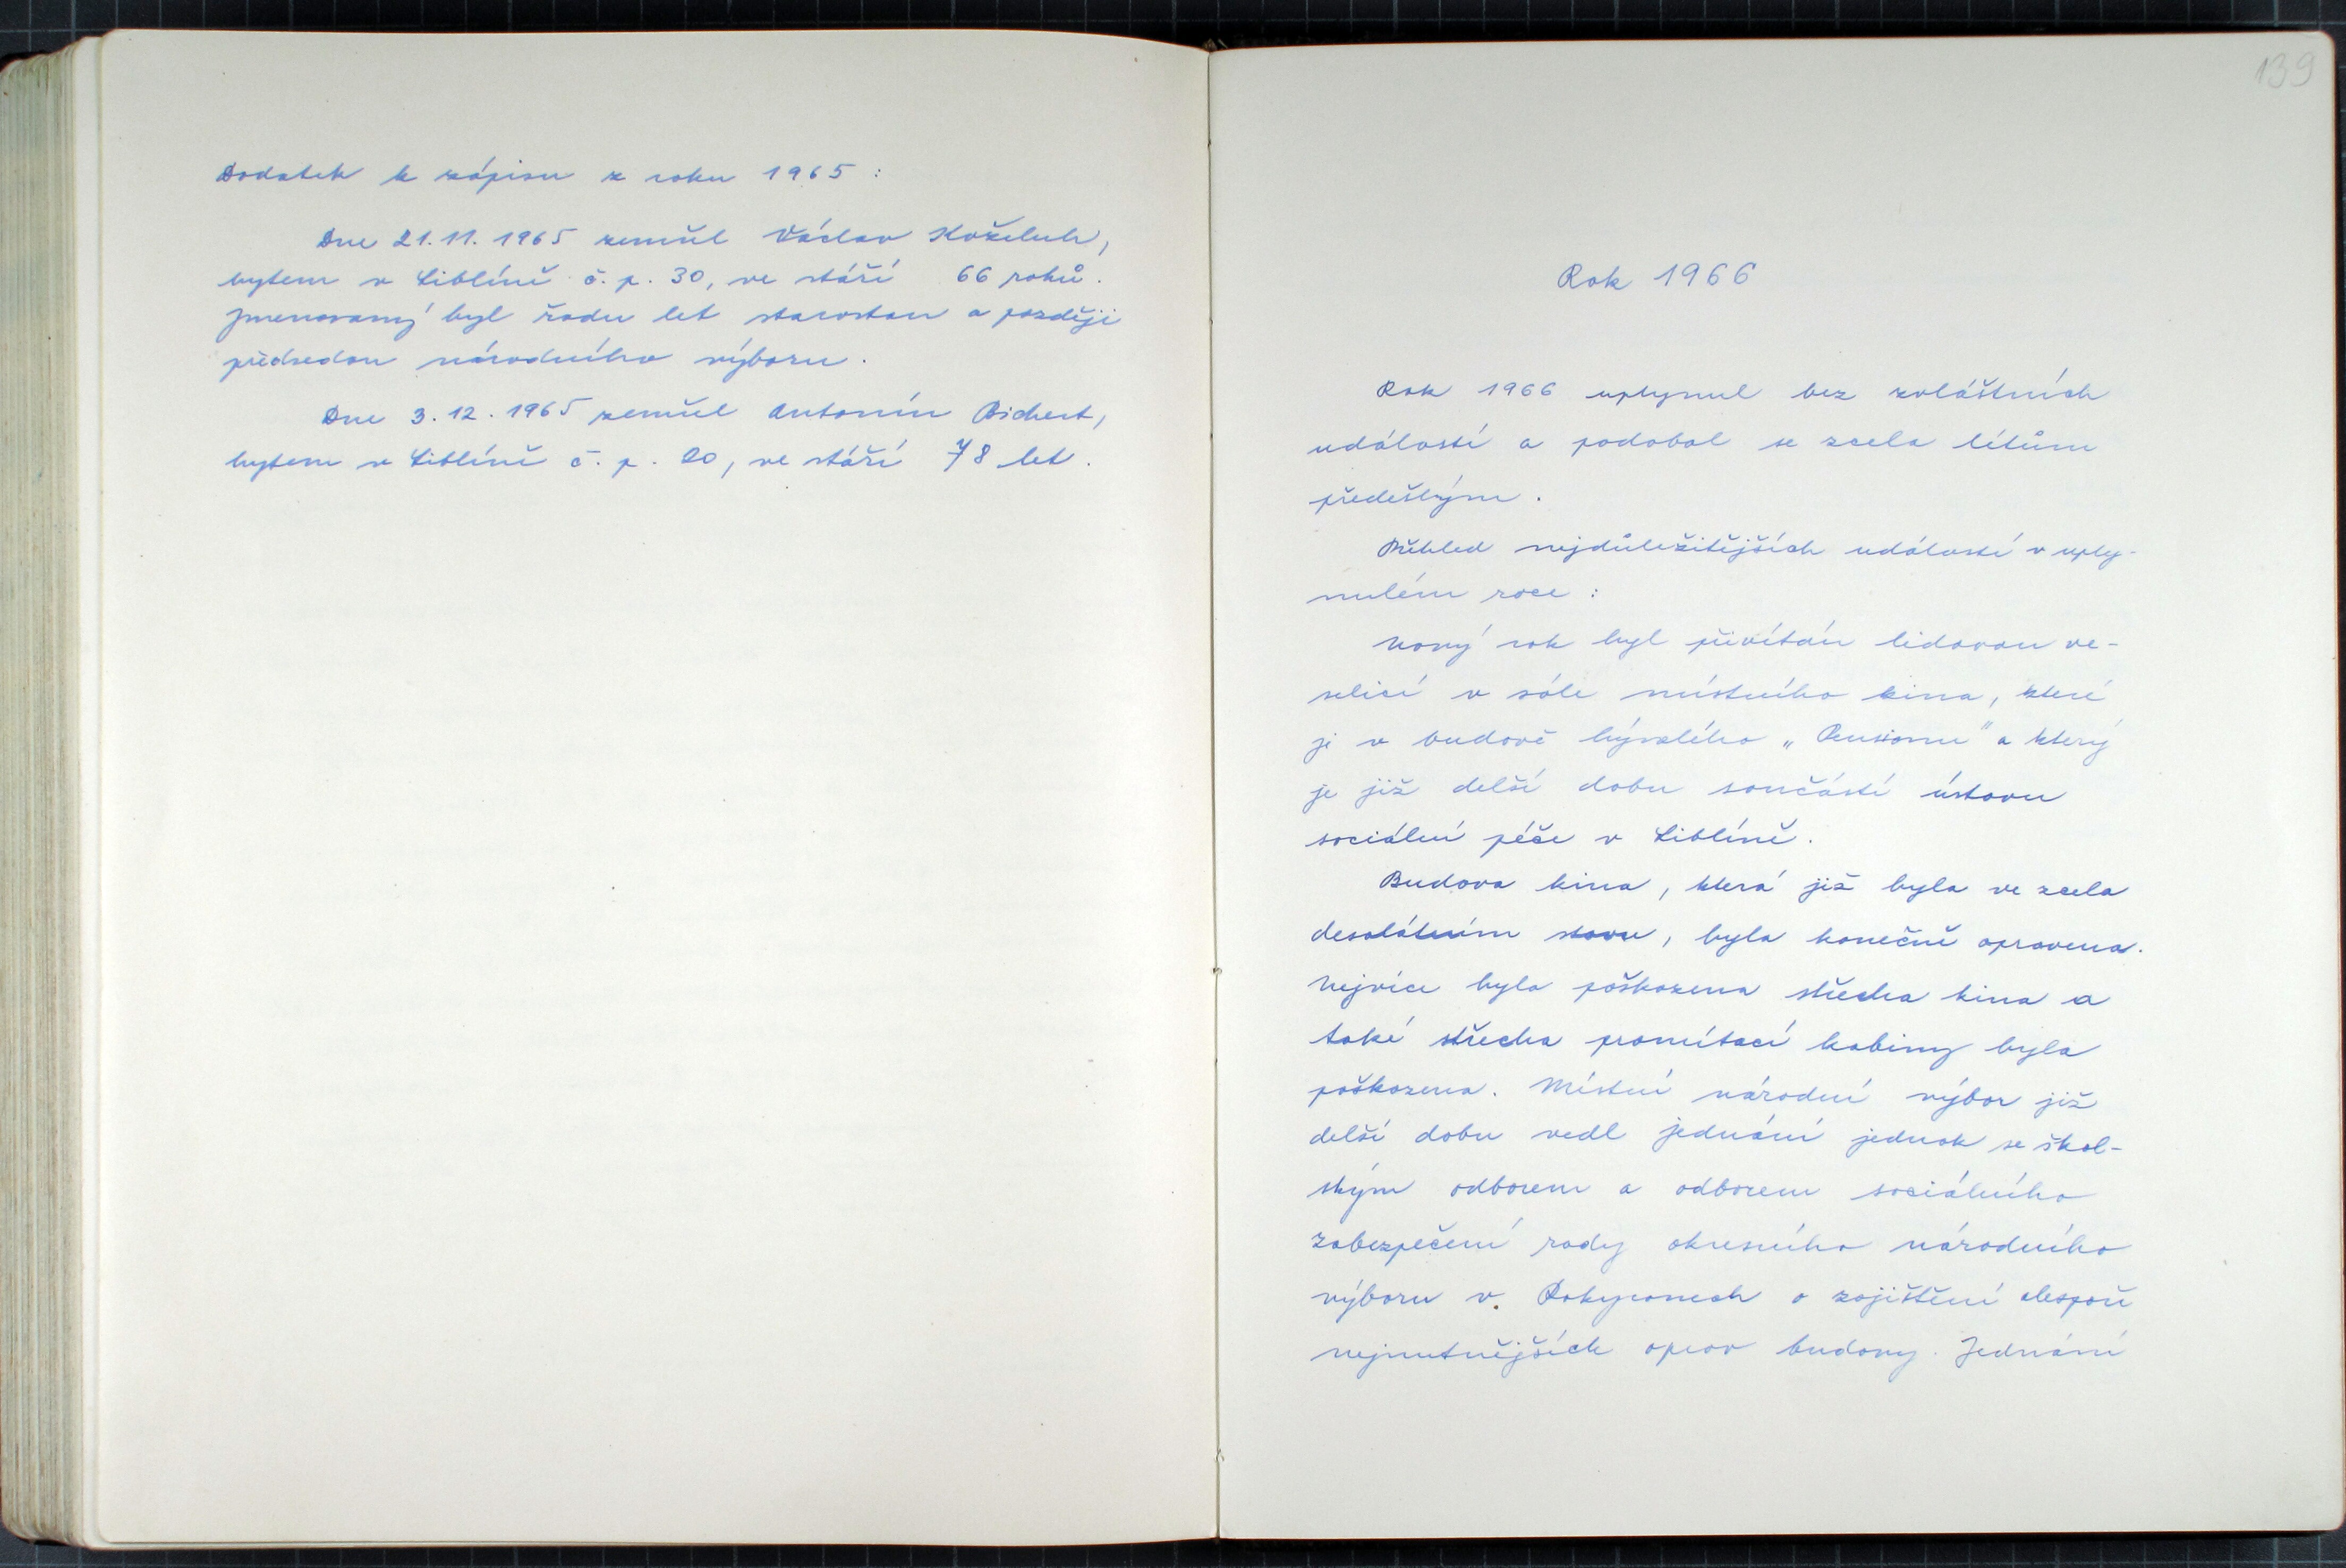 Dodatek k zápisu z roku 1965 :
Dne 21. 11. 1965 zemřel Václav Koželuh,
bytem v Liblíně č. p. 30, ve stáří 66 roků.
Jmenovaný byl řadu let starostou a později
předsedou národního výboru.
Dne 3. 12. 1965 zemřel Antonín Bichert,
bytem v Liblíně č. p. 20, ve stáří 78 let.
139
Rok 1966
Rok 1966 uplynul bez zvláštních
událostí a podobal se zcela létům
předešlým.
Přehled nejdůležitějších událostí v uply-
nulém roce :
Nový rok byl přivítán lidovou ve-
selicí v sále místního kina, které
je v budově bývalého „Pensionu" a který
je již delší dobu součástí ústavu
sociální péče v Liblíně.
Budova kina, která již byla ve zcela
desolátním stavu, byla konečně opravena.
Nejvíce byla poškozena střecha kina a
také střecha promítací kabiny byla
poškozena. Místní národní výbor již
delší dobu vedl jednání jednak se škol-
ským odborem a odborem sociálního
zabezpečení rady okresního národního
výboru v Rokycanech o zajištění alespoň
nejnutnějších oprav budovy. Jednání